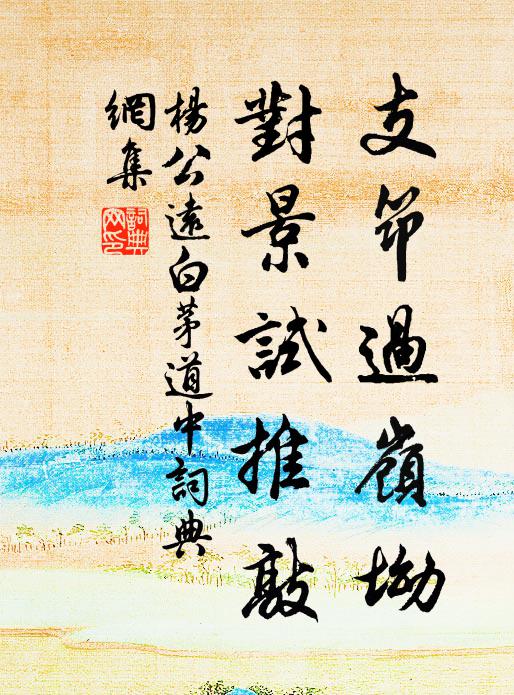 支筇過嶺坳
對景試推敲
楊公遠白茅道中詞典
網集
詞典
网印